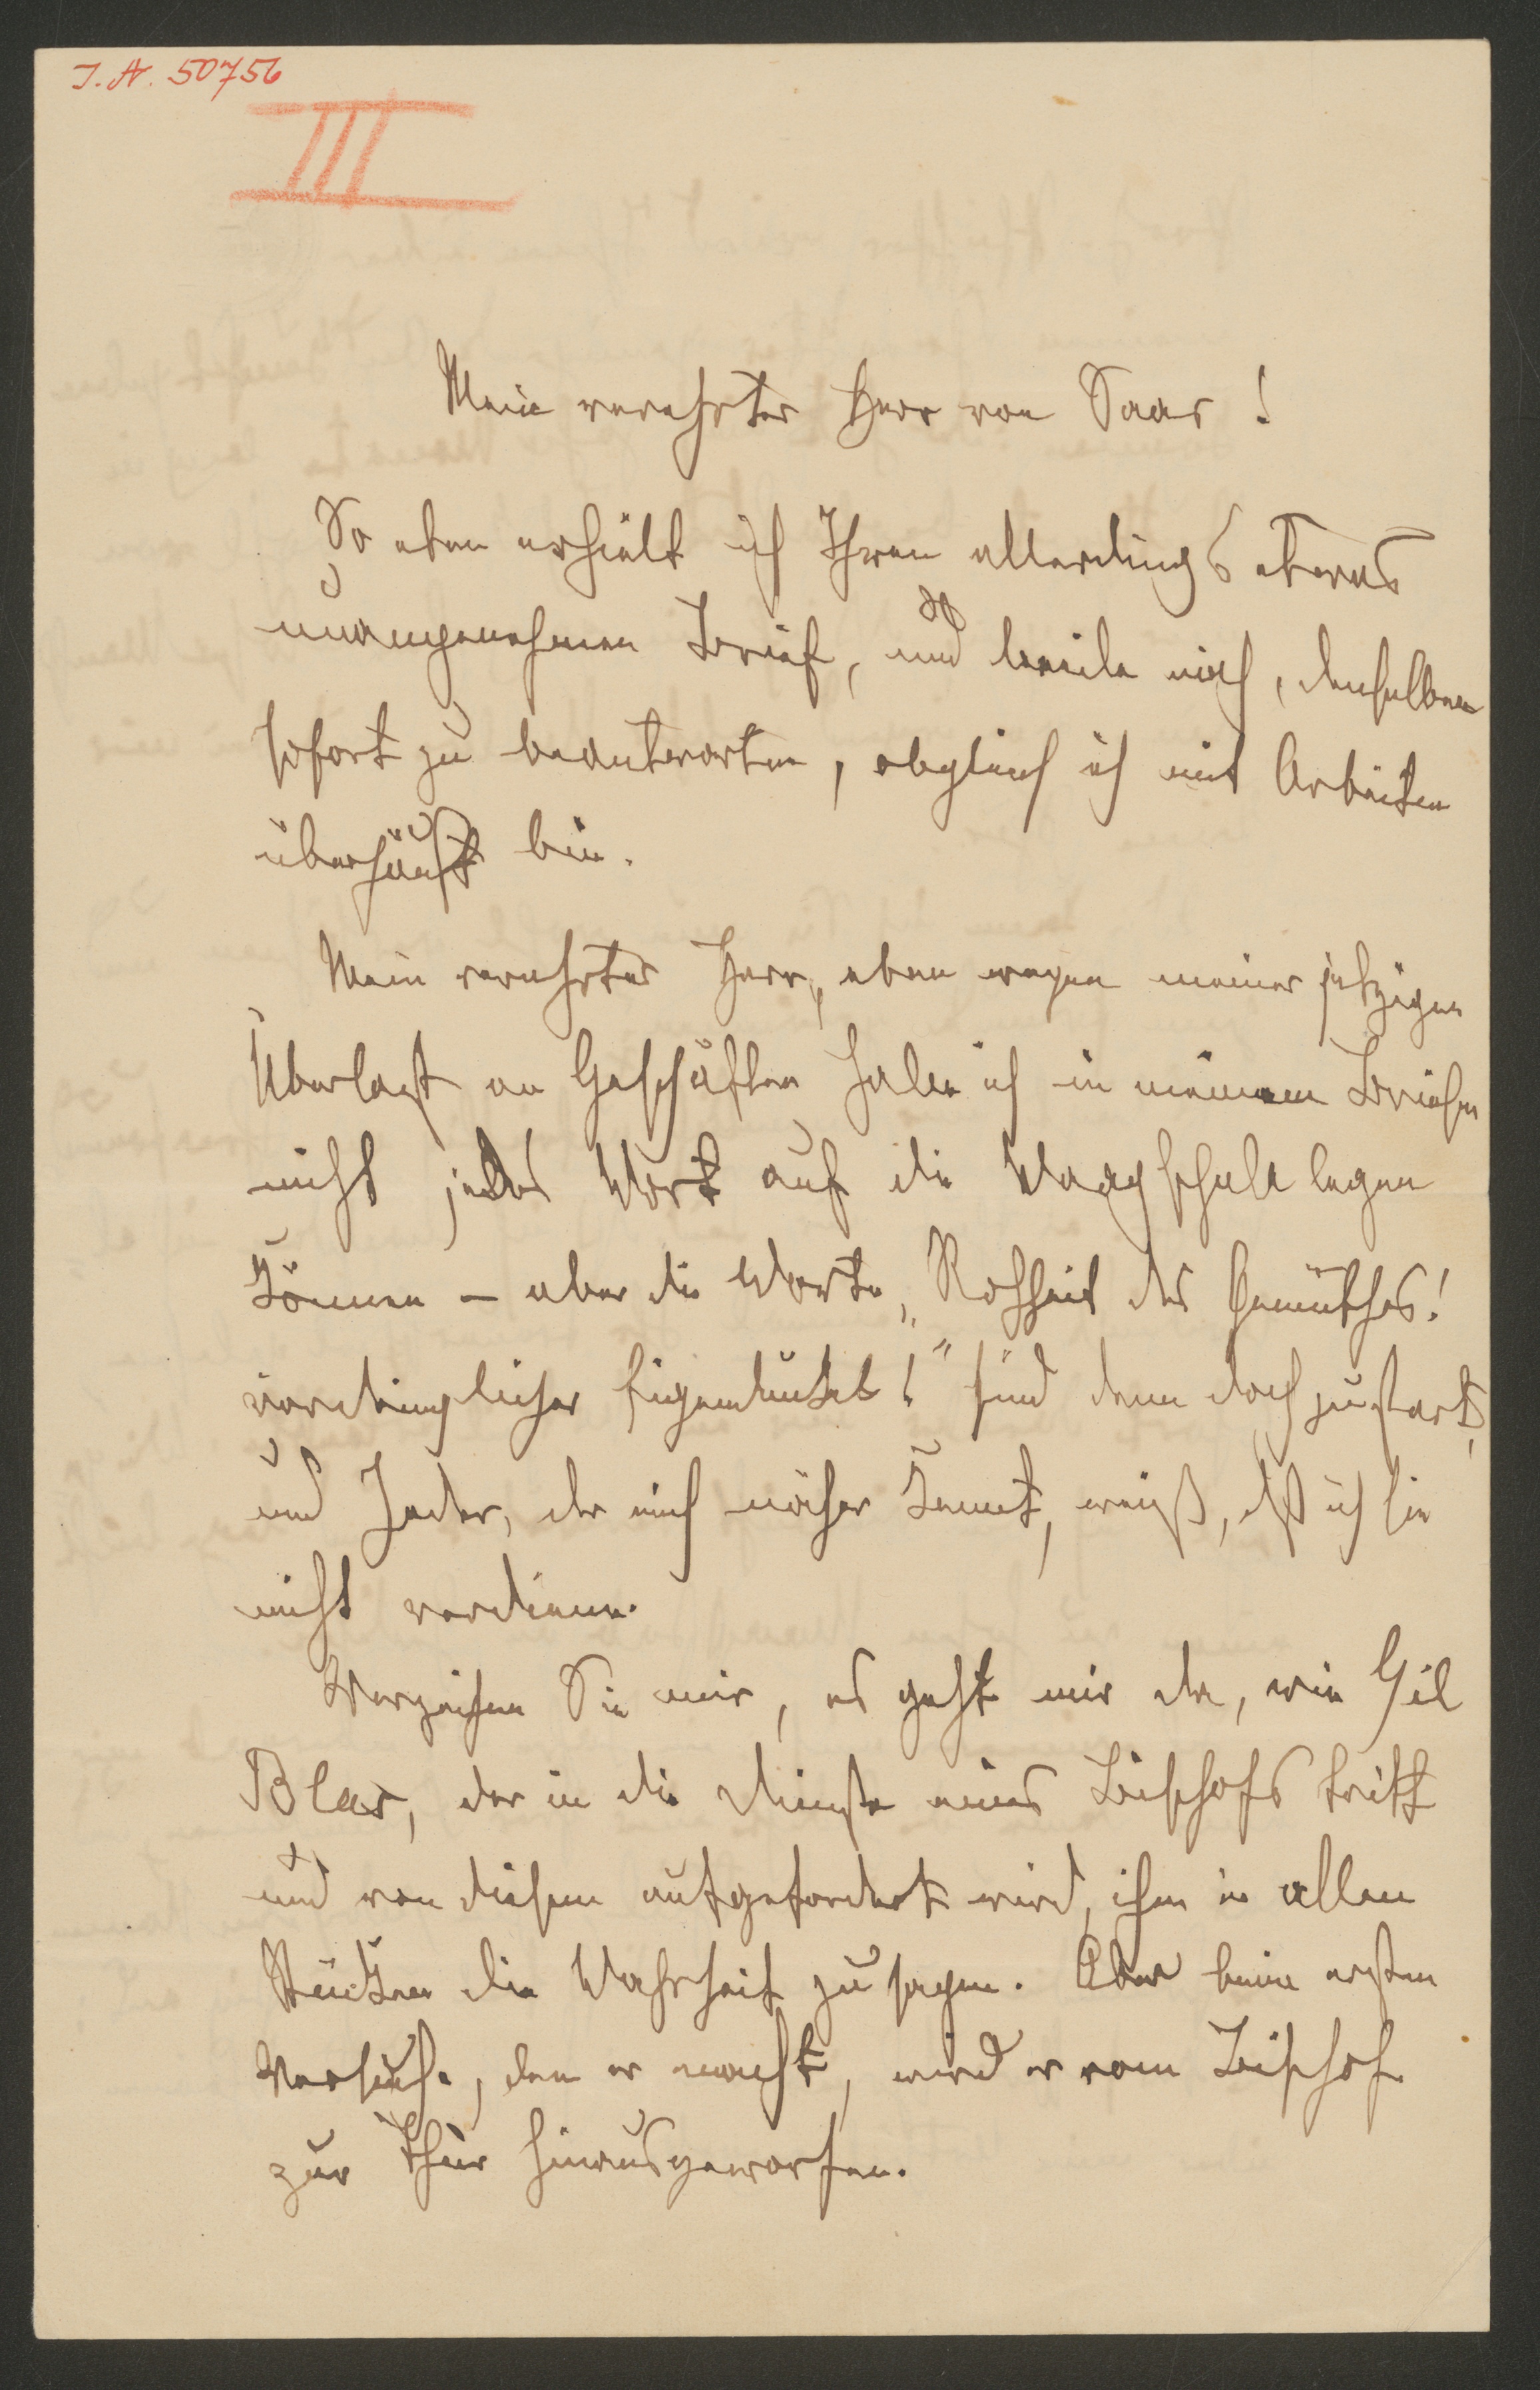 I. N. 50756
III
Mein verehrter Herr von Saar!
So eben erhielt ich Ihren allerdings etwas
unangenehmen Brief, und beeile mich, denselben
sofort zu beantworten, obgleich ich mit Arbeiten
überhäuft bin.
Mein verehrter Herr, eben wegen meiner jetzigen
Überlast an Geschäften habe ich in meinem Briefe
nicht jedes Wort auf die Wagschale legen
können – aber die Worte „Rohheit des Gemüthes!
vordringlicher Eigendünkel!“ sind denn doch zu stark,
und Jeder, der mich näher kennt, weiß, dß ich sie
nicht verdiene.
Verzeihen Sie mir, es geht mir da, wie Gil
Blas, der in die Dienste eines Bischofs tritt
und von diesem aufgefordert wird, ihm in allen
Stücken die Wahrheit zu sagen. Aber beim ersten
Versuche, den er macht, wird er vom Bischof
zur Thür hinausgeworfen.